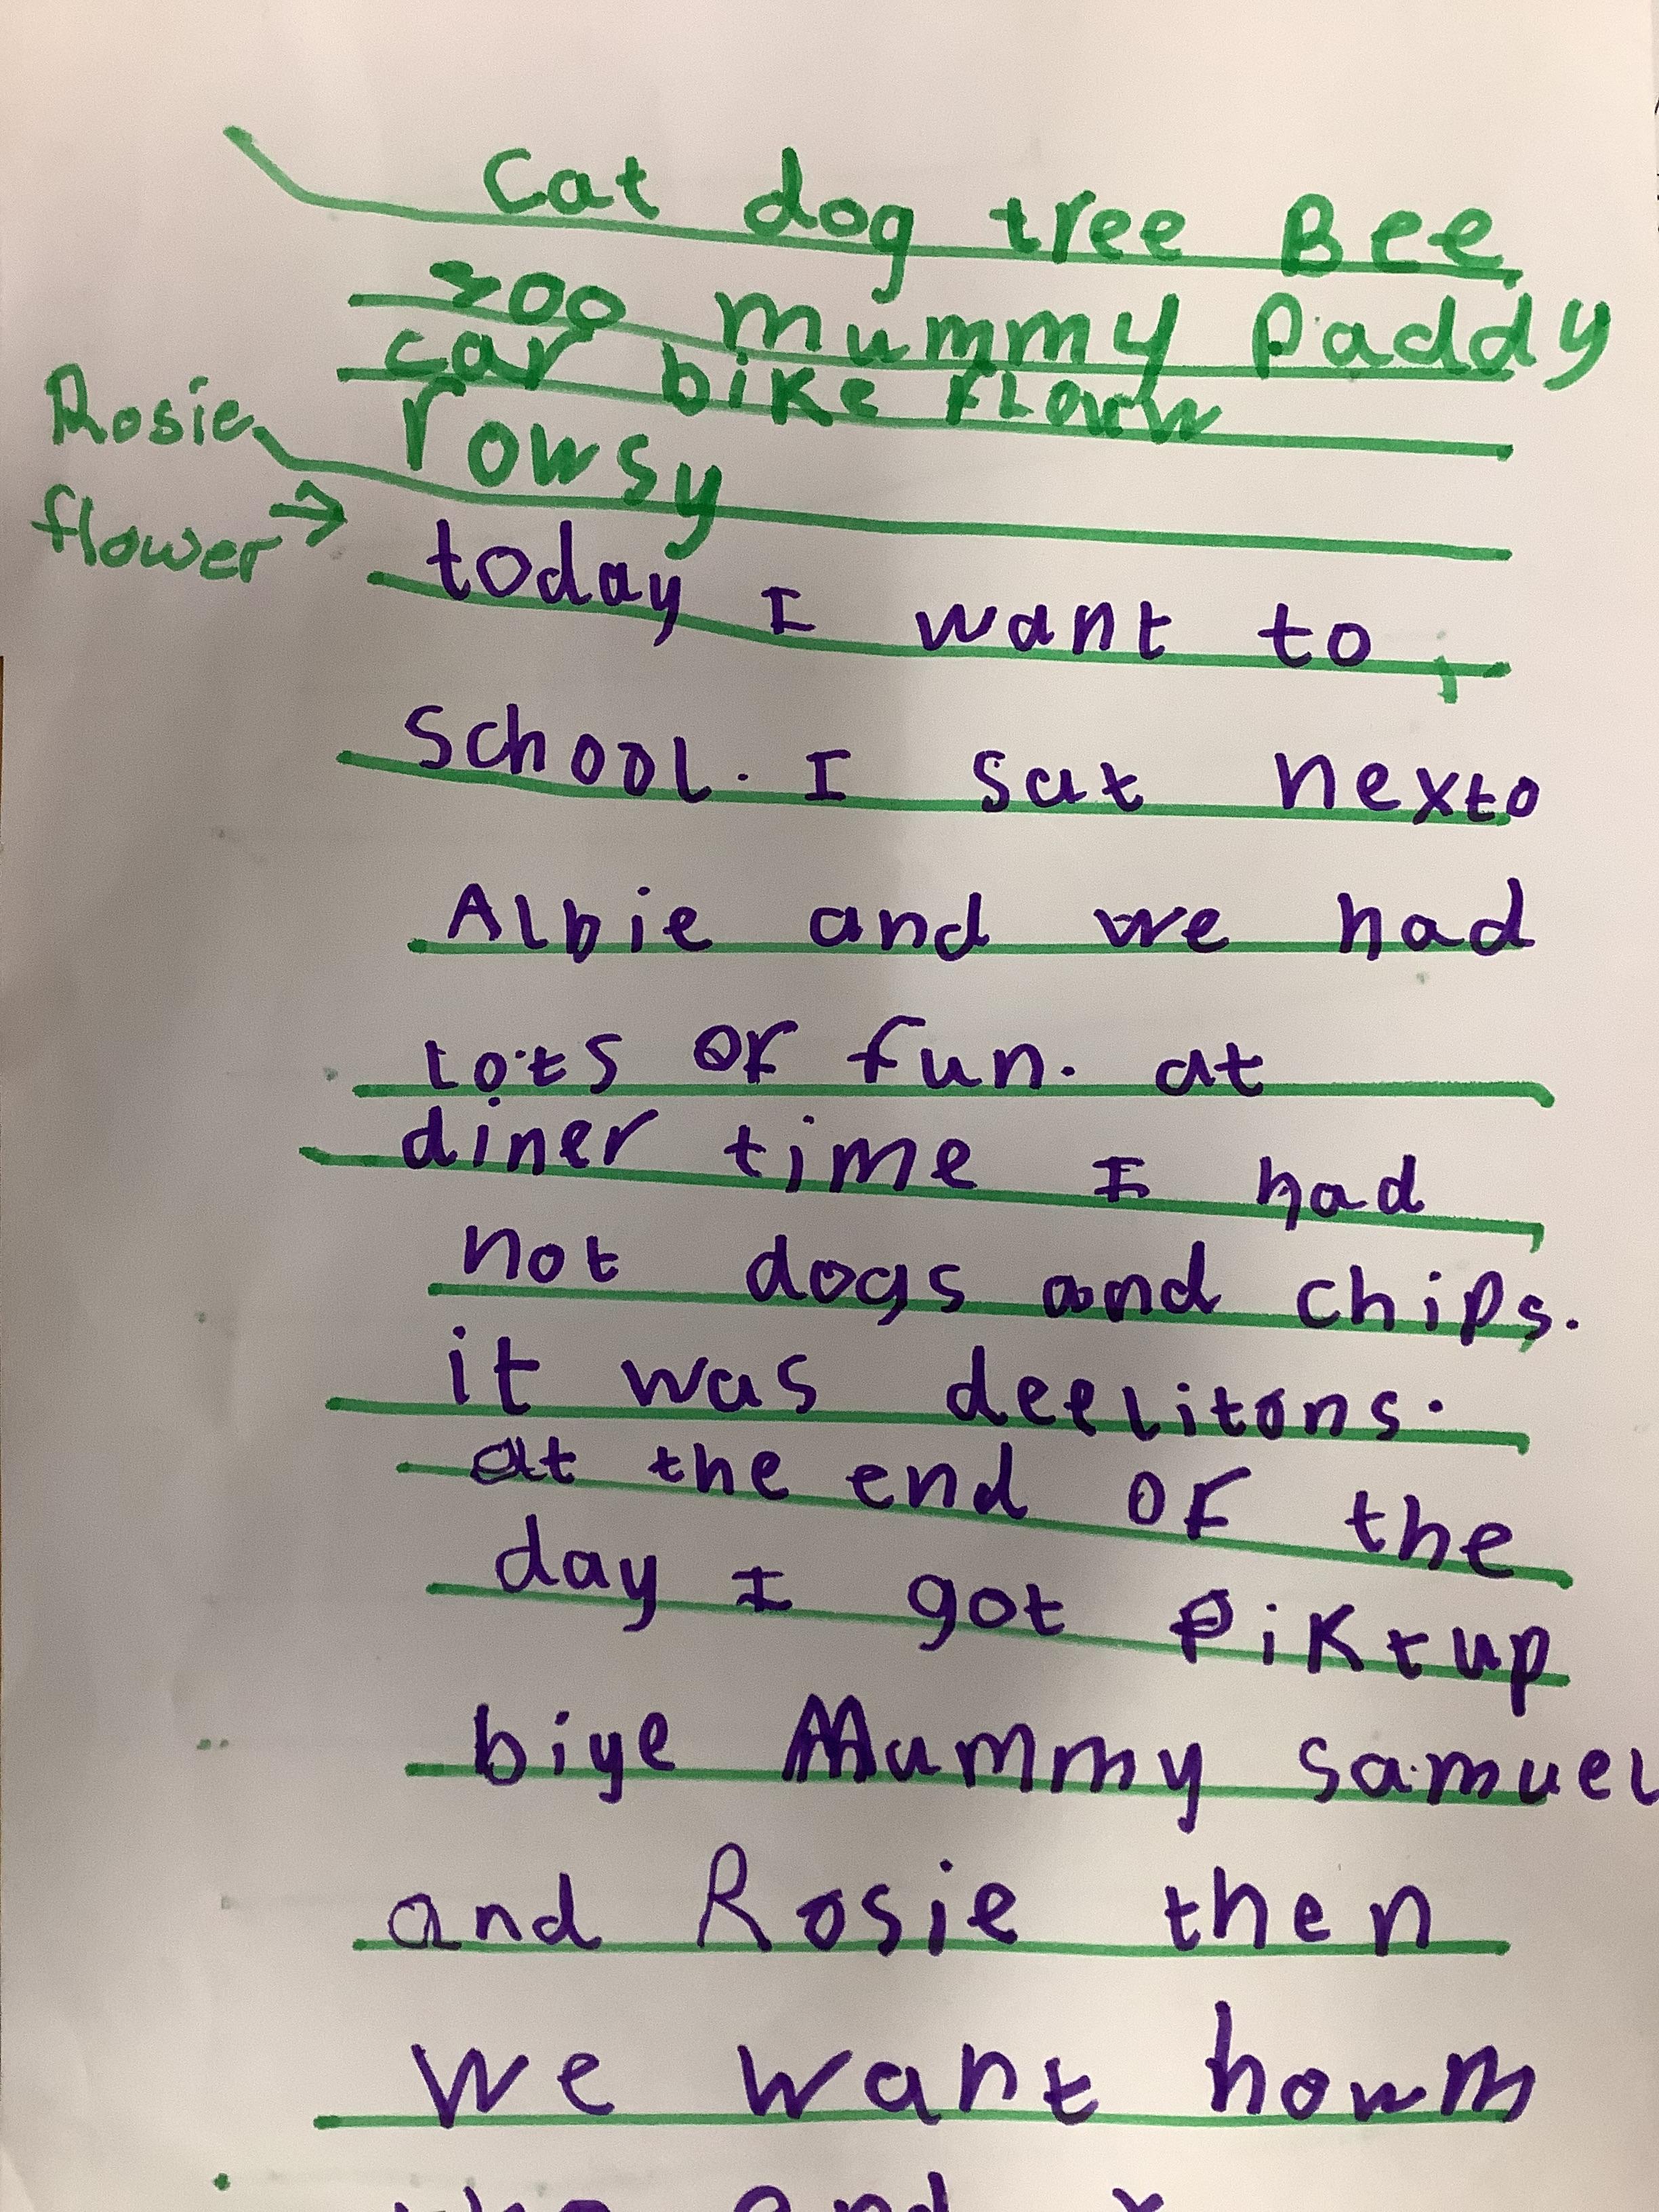 Cat dog tree Bee
zoo mummy Daddy
car bike flouw
Rosie rowsy
flower →
today I want to
school. I sat nexto
Albie and we had
lots of fun. at
diner time I had
hot dogs and chips.
it was deelitons.
at the end of the
day I got piktup
biye Mummy samuel
and Rosie then
we want howm
and